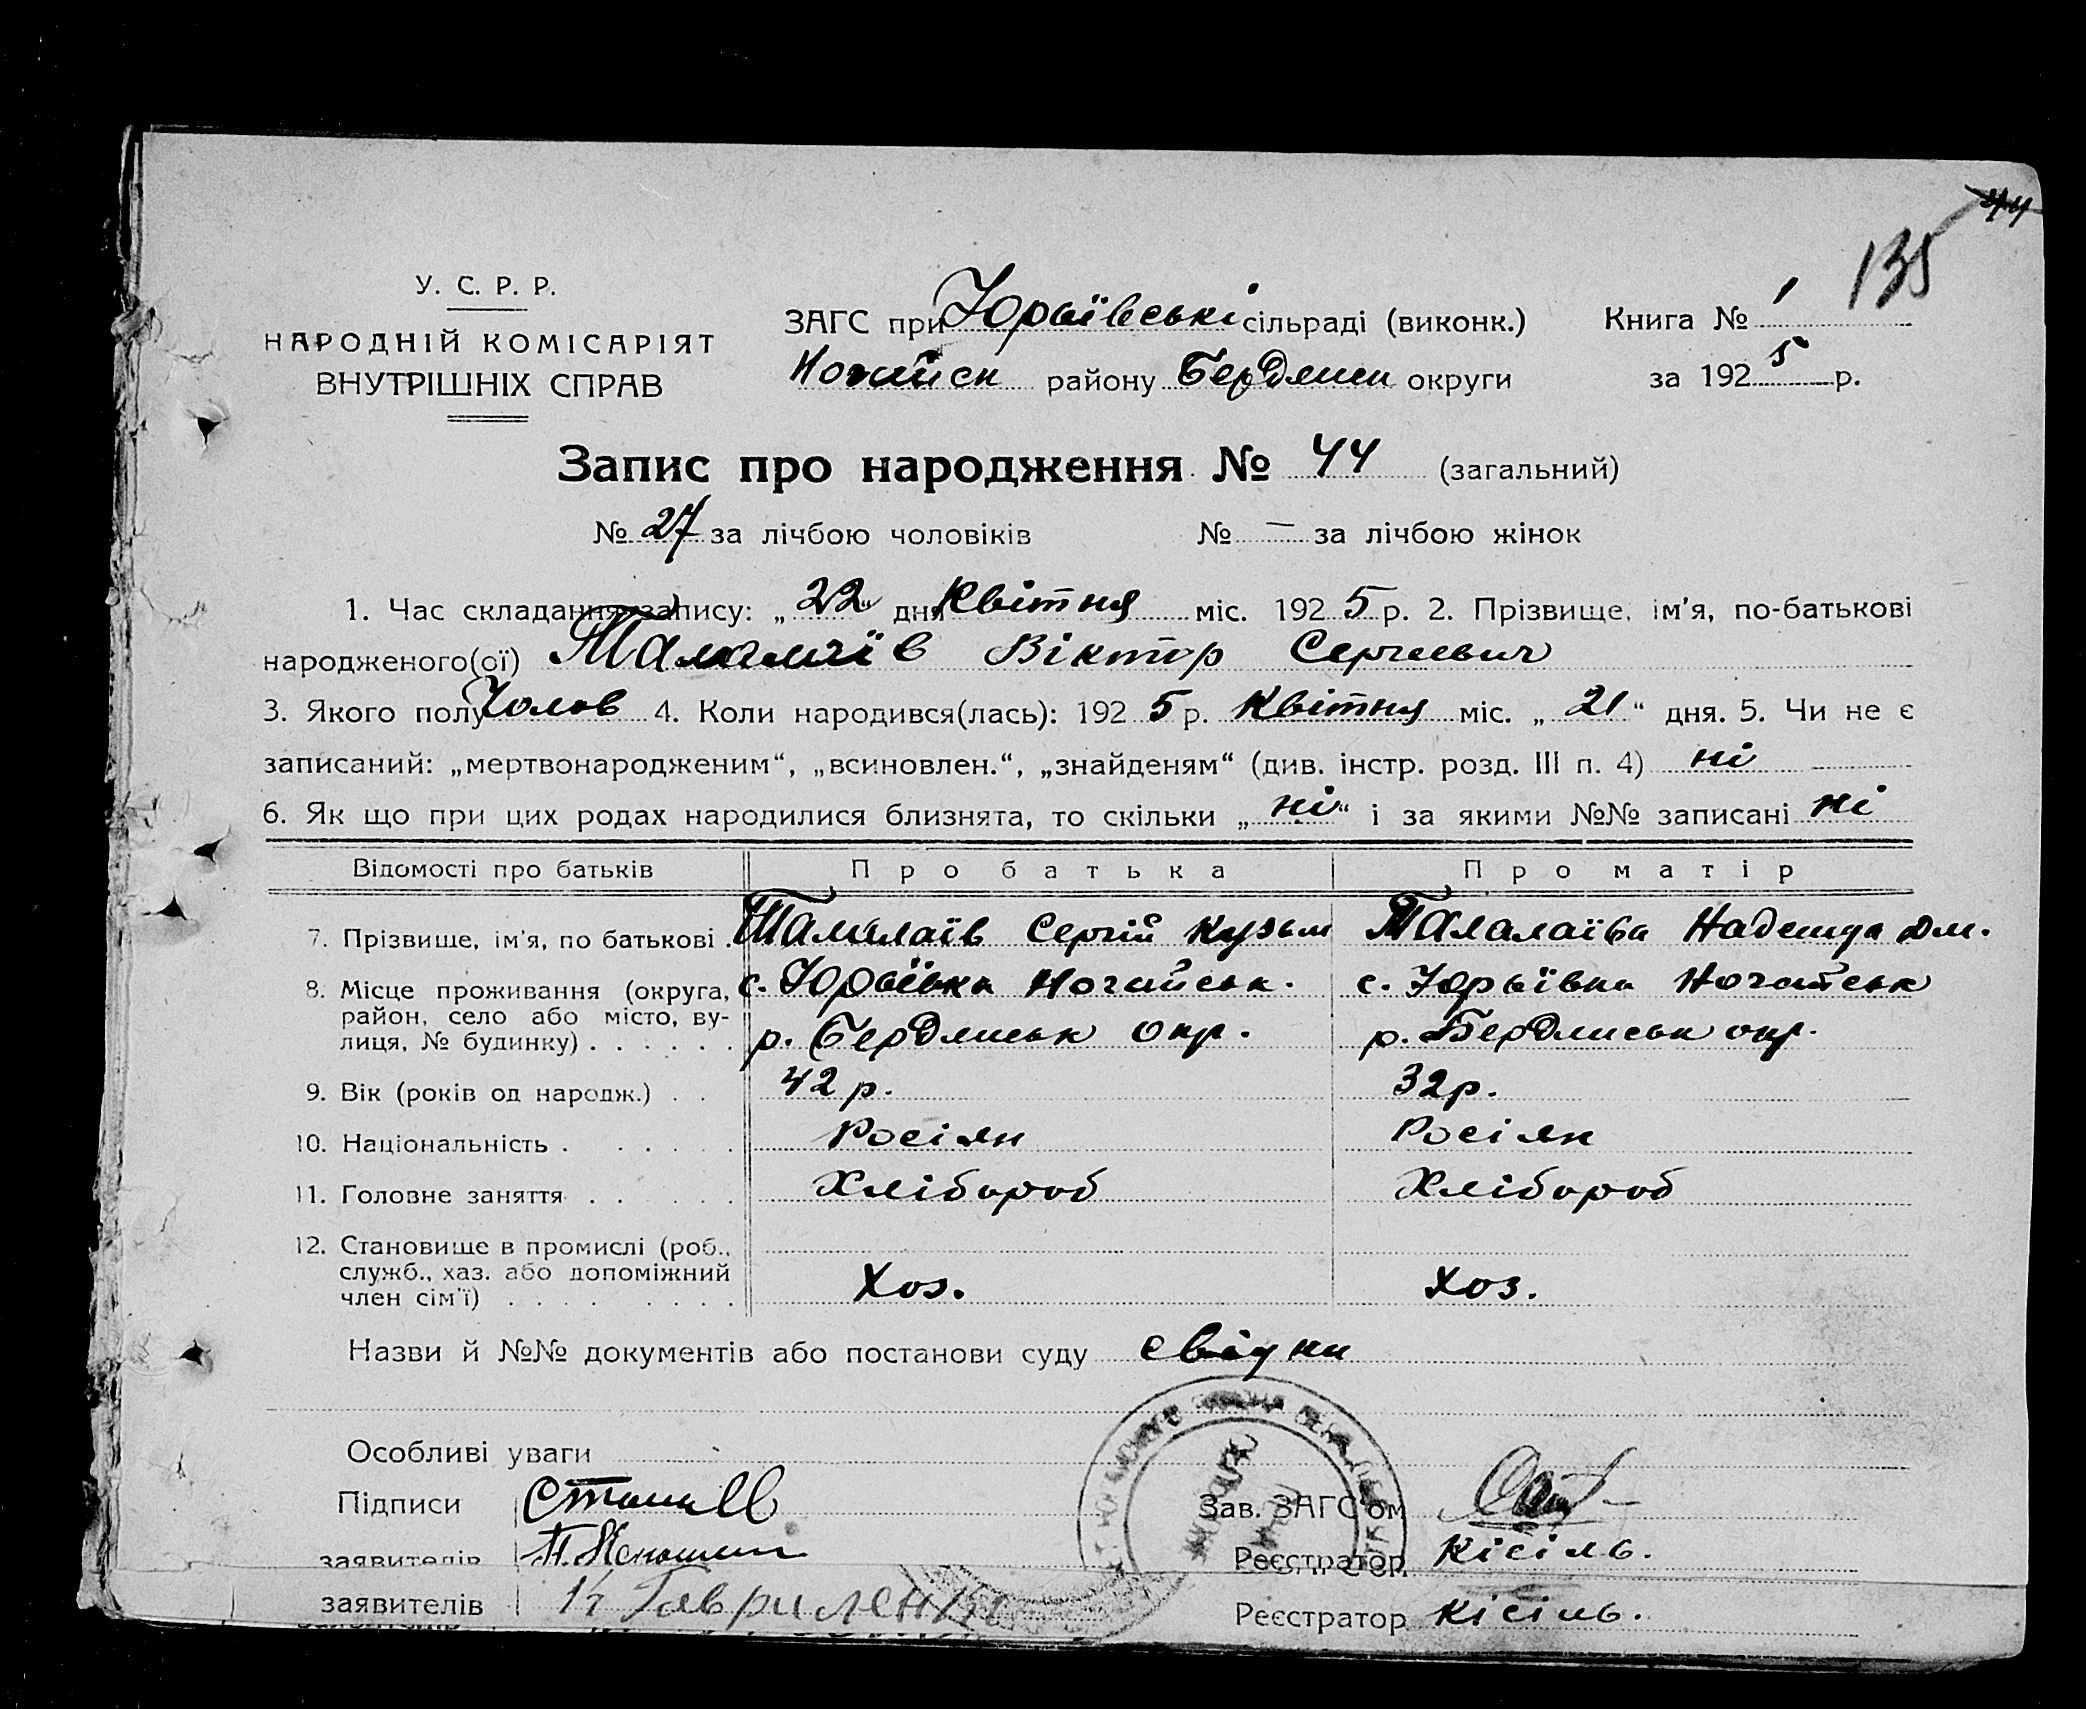 44
135
У. С. Р. Р.
НАРОДНІЙ КОМІСАРІЯТ
ВНУТРІШНІХ СПРАВ
ЗАГС при Юрьївські сільраді (виконк.) Книга № 1
Ногайск району Бердянск округи за 1925 р.
Запис про народження № 44 (загальний)
№ 27 за лічбою чоловіків № — за лічбою жінок
1. Час складання запису: „22“ дня Квітня міс. 1925 р. 2. Прізвище, ім’я, по-батькові
народженого(ої) Талалаїв Віктор Сергиевич
3. Якого полу Чолов 4. Коли народився(лась): 1925 р. Квітня міс. „21“ дня. 5. Чи не є
записаний: „мертвонародженим“, „всиновлен.“, „знайденям“ (див. інстр. розд. III п. 4) ні
6. Як що при цих родах народилися близнята, то скільки „ні“ і за якими №№ записані ні
Відомості про батьків Про батька Про матір
7. Прізвище, ім’я, по батькові . Талалаїв Сергій Кузьм Талалаїва Надежда Дм.
8. Місце проживання (округа, с. Юрьївка Ногайськ. с. Юрьївка Ногайськ
район, село або місто, ву-
лиця, № будинку) . . . . . . р. Бердянськ окр. р. Бердянськ окр.
9. Вік (років од народж.) . . 42 р. 32 р.
10. Національність . . . . . . Росіян Росіян
11. Головне заняття . . . . Хлібороб Хлібороб
12. Становище в промислі (роб.,
служб., хаз. або допоміжний Хоз. Хоз.
член сім’ї) . . . . . . . .
Назви й №№ документів або постанови суду свідки
Особливі уваги
Підписи Зав. ЗАГС’ом
заявителів Реєстратор Кісіль.
заявителів Гавриленко Реєстратор Кісіль.